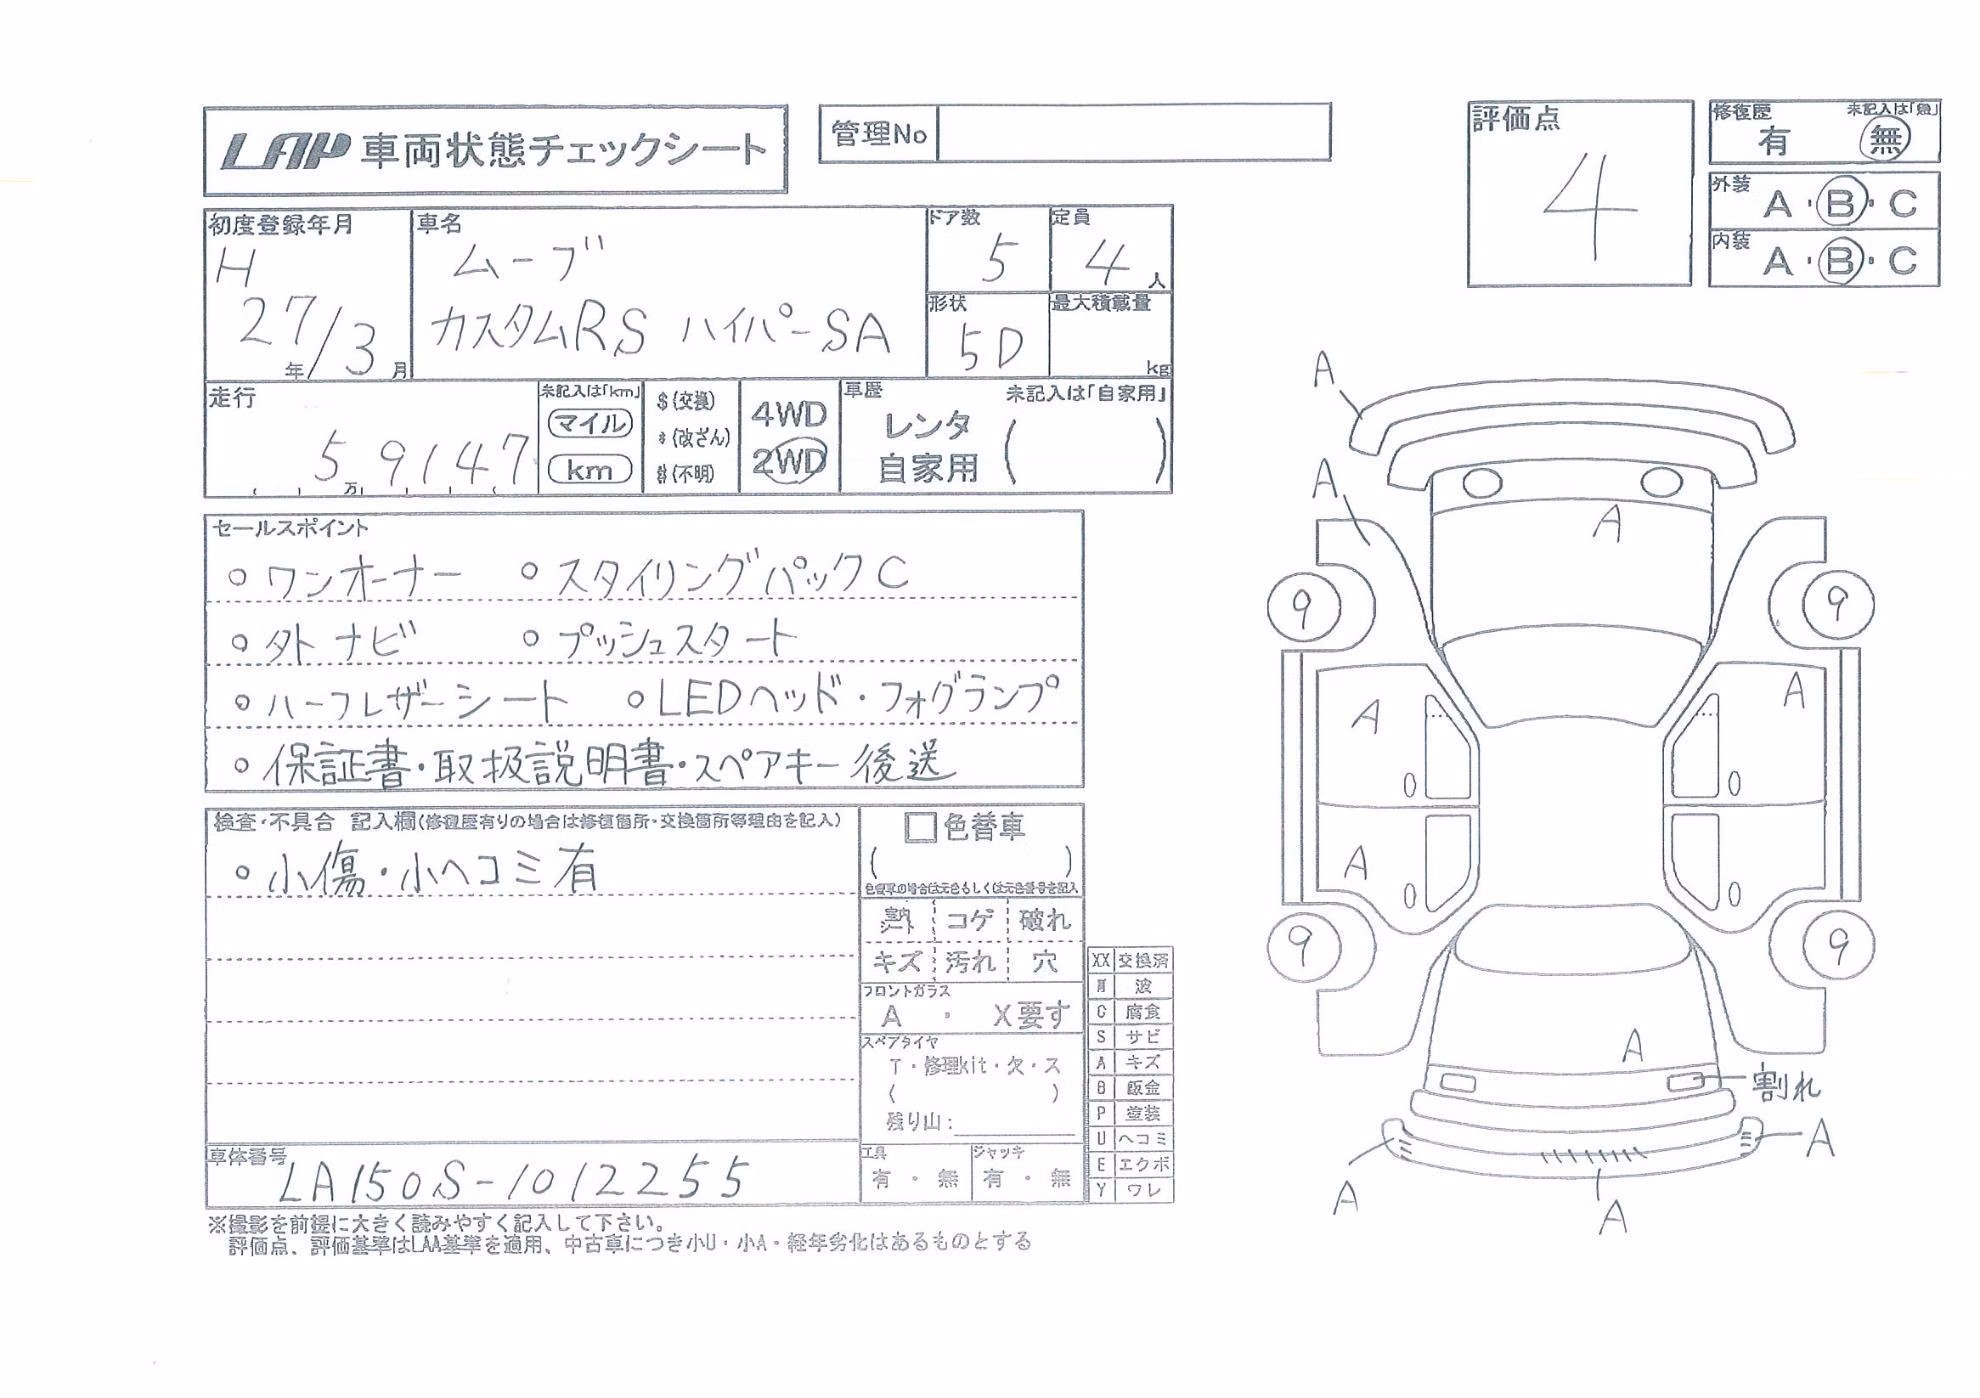 LAP 車両状態チェックシート
管理No
評価点
4
修復歴 未記入は「無」
有 無
外装 A・B・C
内装 A・B・C
初度登録年月
H
27/3
年 月
車名
ムーブ
カスタムRS ハイパーSA
ドア数
5
定員
4人
形状
5D
最大積載量
kg
走行
59147
万
未記入は「km」
マイル
km
$(交換)
*(改ざん)
#(不明)
4WD
2WD
車歴 未記入は「自家用」
レンタ
自家用
( )
セールスポイント
○ワンオーナー ○スタイリングパックC
○外ナビ ○プッシュスタート
○ハーフレザーシート ○LEDヘッド・フォグランプ
○保証書・取扱説明書・スペアキー後送
検査・不具合 記入欄(修復歴有りの場合は修復箇所・交換箇所等理由を記入)
○小傷・小ヘコミ有
色替車
( )
色替車の場合は元色もしくは元色番号を記入
コゲ 破れ
キズ 汚れ 穴
フロントガラス
A ・ X要す
スペアタイヤ
T・修理kit・欠・ス
( )
残り山:
工具
有・無
ジャッキ
有・無
XX 交換済
波
C 腐食
S サビ
A キズ
B 鈑金
P 塗装
U ヘコミ
E エクボ
Y ワレ
車体番号
LA150S-1012255
※撮影を前提に大きく読みやすく記入して下さい。
評価点、評価基準はLAA基準を適用、中古車につき小U・小A・経年劣化はあるものとする
A
A
A
9 9
A
A
A
9 9
A
割れ
A
A
A